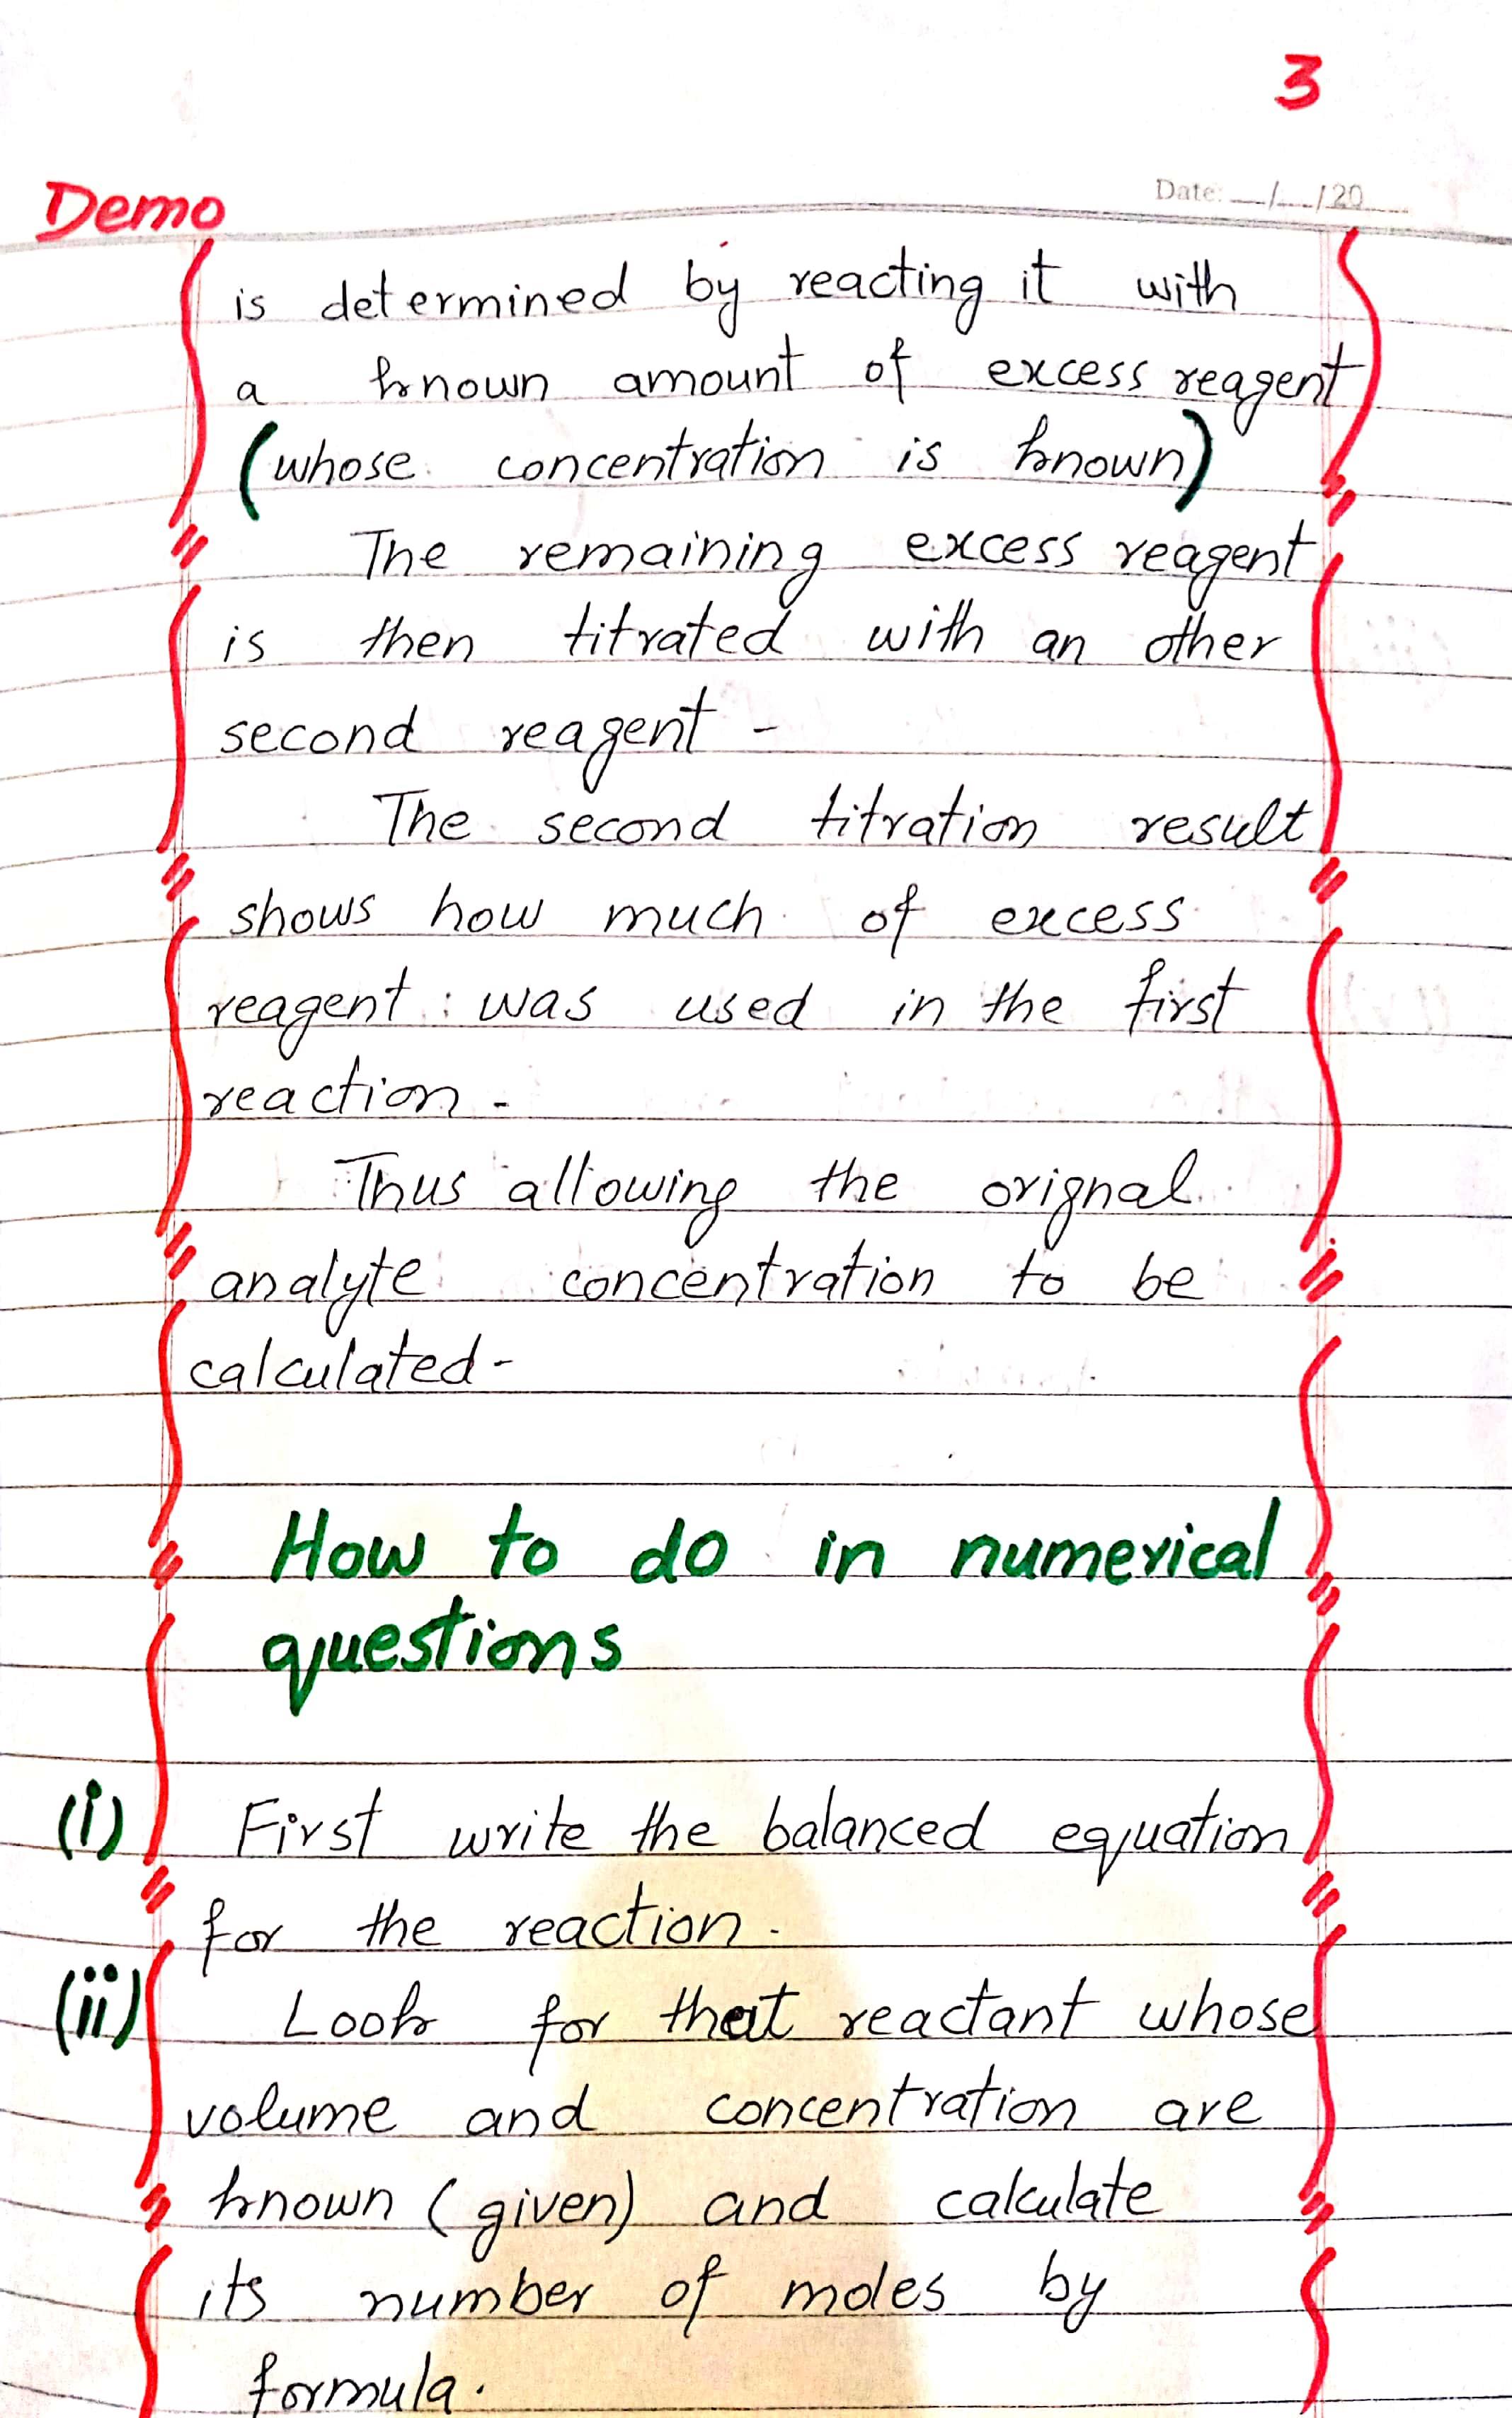 3
Demo
Date: __/__/20__
is determined by reacting it with
a known amount of excess reagent
(whose concentration is known)
The remaining excess reagent
is then titrated with an other
second reagent -
The second titration result
shows how much of excess
reagent was used in the first
reaction -
Thus allowing the orignal
analyte concentration to be
calculated -
How to do in numerical
questions
(i) First write the balanced equation
for the reaction.
(ii) Look for that reactant whose
volume and concentration are
known (given) and calculate
its number of moles by
formula.